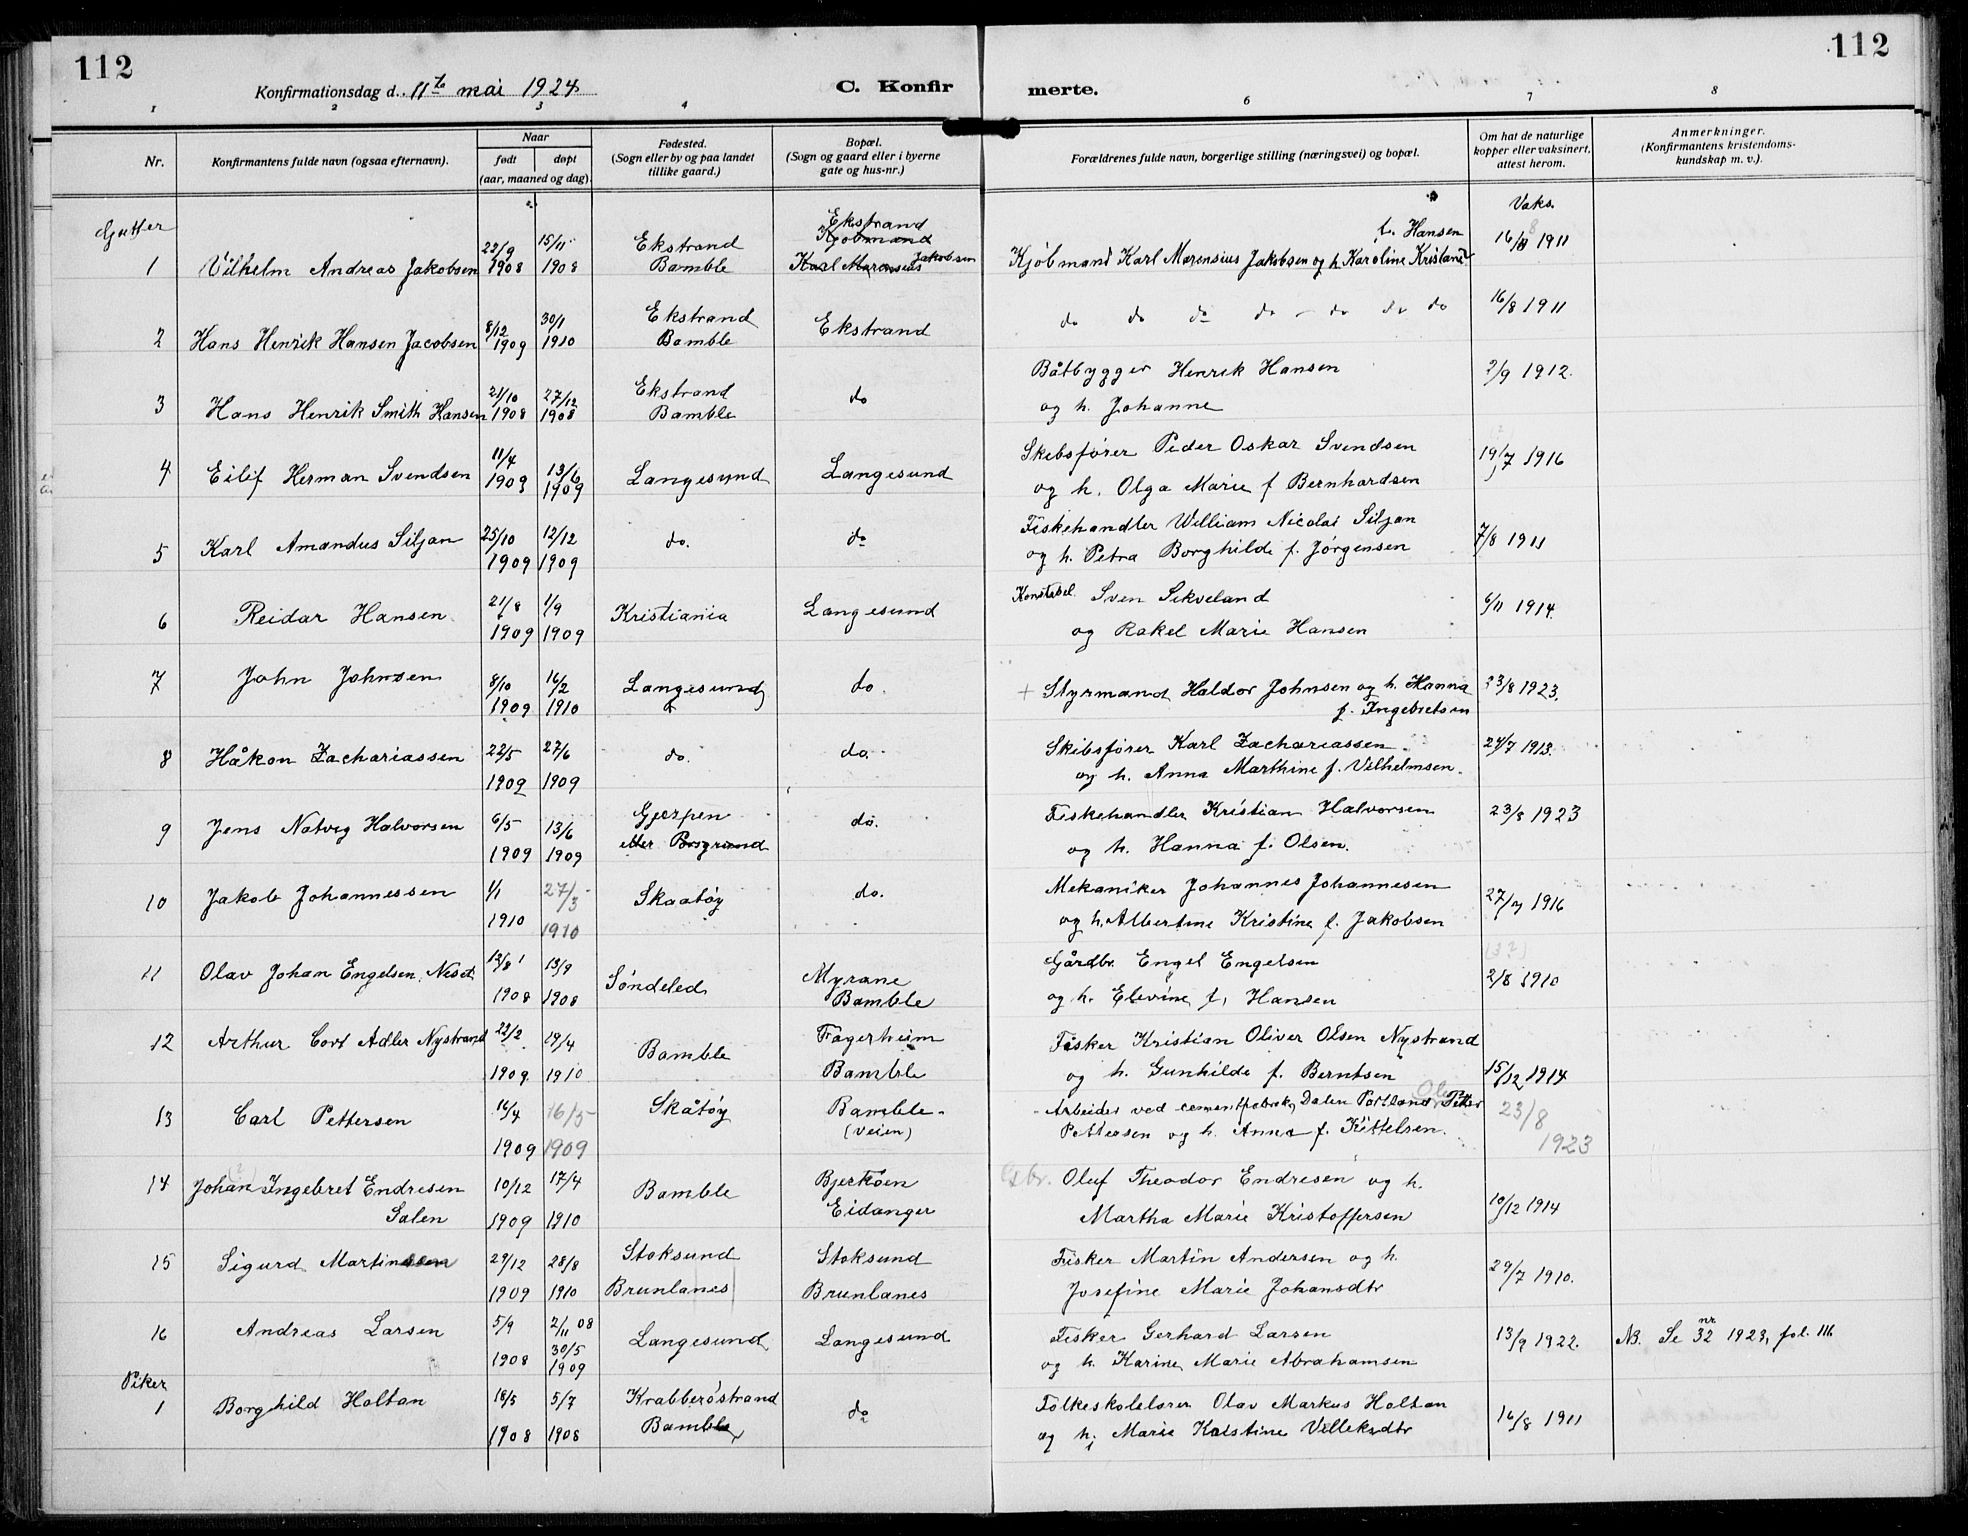 112
112
Konfirmationsdag d. 11te mai 1924
C. Konfir
merte.
1 2 3 4 6 7 8
Nr.
Konfirmantens fulde navn (ogsaa efternavn).
Naar
født
døpt
(aar, maaned og dag).
Fødested.
(Sogn eller by og paa landet
tillike gaard.)
Bopæl.
(Sogn og gaard eller i byerne
gate og hus-nr.)
Forældrenes fulde navn, borgerlige stilling (næringsvei) og bopæl.
Om hat de naturlige
kopper eller vaksinert,
attest herom.
Anmerkninger.
(Konfirmantens kristendoms-
kundskap m. v.).
Gutter
Vaks.
22/9 15/11 Ekstrand Ekstrand Kjøbmand f. Hansen
1 Vilhelm Andreas Jakobsen 1908 1908 Bamble Karl Marensius Jakobsen Kjøbmand Karl Marensius Jakobsen og h. Karoline Kristane 16/8 1911
8/12 30/1 Ekstrand
2 Hans Henrik Hansen Jacobsen 1909 1910 Bamble Ekstrand do do do do - do do do 16/8 1911
21/10 27/12 Ekstrand Båtbygger Henrik Hansen
3 Hans Henrik Smith Hansen 1908 1908 Bamble do og h. Johanne 2/9 1912.
11/4 13/6 Skibsfører Peder Oskar Svendsen
4 Eilif Herman Svendsen 1909 1909 Langesund Langesund og h. Olga Marie f Bernhardsen 19/7 1916
25/10 12/12 Fiskehandler William Nicolai Siljan
5 Karl Amandus Siljan 1909 1909 do. do og h. Petra Borghilde f. Jørgensen 7/8 1911
21/8 1/9 Konstabel Sven Sikveland
6 Reidar Hansen 1909 1909 Kristiania Langesund og Rakel Marie Hansen 6/11 1914.
8/10 16/2 + Styrmand Haldor Johnsen og h. Hanna
7 John Johnsen 1909 1910 Langesund do. f. Ingebretsen 23/8 1923.
22/5 27/6 Skibsfører Karl Zachariassen
8 Håkon Zachariassen 1909 1909 do. do. og h. Anna Marthine f. Vilhelmsen. 24/7 1913.
6/5 13/6 Gjerpen Fiskehandler Kristian Halvorsen
9 Jens Natvig Halvorsen 1909 1909 eller Porsgrund do. og h. Hanna f. Olsen. 23/8 1923
1/1 27/3 Mekaniker Johannes Johannesen
10 Jakob Johannessen 1910 1910 Skaatøy do. og h. Albertine Kristine f. Jakobsen 27/7 1916
12/8 13/9 Myrane Gårdbr. Engel Engelsen (3?)
11 Olav Johan Engelsen Neset 1908 1908 Søndeled Bamble og h. Elevine f. Hansen 2/8 1910
22/2 19/4 Fagerheim Fisker Kristian Oliver Olsen Nystrand
12 Arthur Cort Adler Nystrand 1909. 1910 Bamble Bamble og h. Gunhilde f. Berntsen 15/12 1914
16/4 16/5 Skåtøy Bamble Arbeider ved cementfabrik Dalen Portland Peter
13 Carl Pettersen 1909 1909 (veien) Pettersen og h. Anna f. Kittelsen. 23/8 1923
(?) 10/12 17/4 Bjerkøen Gbr. Oluf Theodor Endresen og h.
14 Johan Ingebret Endresen Salen 1909 1910 Bamble Eidanger Martha Marie Kristoffersen 10/12 1914
29/12 28/8 Stoksund Stoksund Fisker Martin Andersen og h.
15 Sigurd Martinsen 1909 1910 Brunlanes Brunlanes Josefine Marie Johansdtr 29/7 1910.
5/9 2/11 08 Fisker Gerhard Larsen
16 Andreas Larsen 1908 30/5 1909 Langesund Langesund og h. Karine Marie Abrahamsen 13/9 1922. NB. Se nr 32 1923, fol. 116
Piker
18/5 5/7 Krabberøstrand Folkeskolelærer Olav Markus Holtan
1 Borghild Holtan 1908 1908 Bamble do og h. Marie Kristine Villeksdtr 16/8 1911